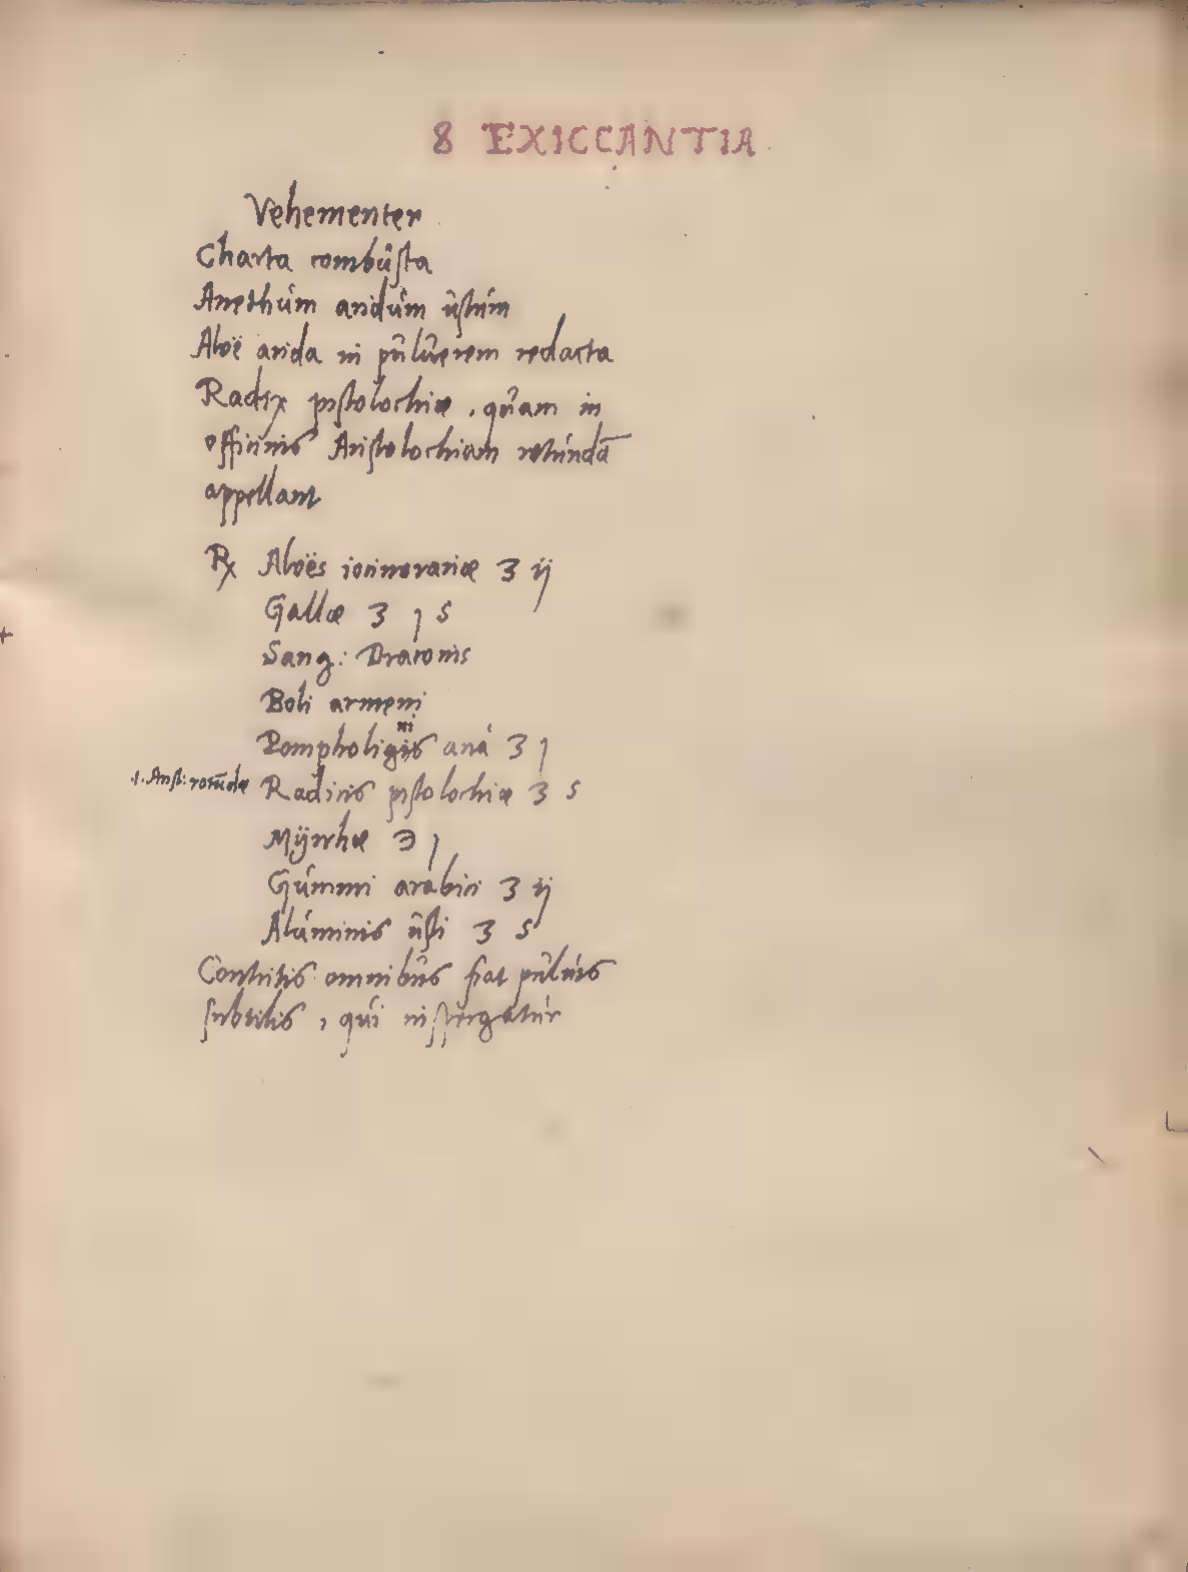 8 EXICCANTIA
Vehementer
Charta combûsta
Anethúm aridúm ûstúm
Aloë arida in pûlûerem redacta
Radix pistolochiæ, qûam in
officinis Aristolochiam rotúndā
appellant
℞ Aloës ʒ ij
Gallæ ʒ j s
Sang: Draconis
Boli armeni
Pompholigis aná ʒ j
.i. Arist: rotūdæ Radicis pistolochiæ ʒ s
Mÿrrhæ ℈ j
Gúmmi arabici ʒ ij
Alúminis ûsti ʒ s
Contritis omnibûs fiat pûlúis
subtilis, qúi inspergatúr